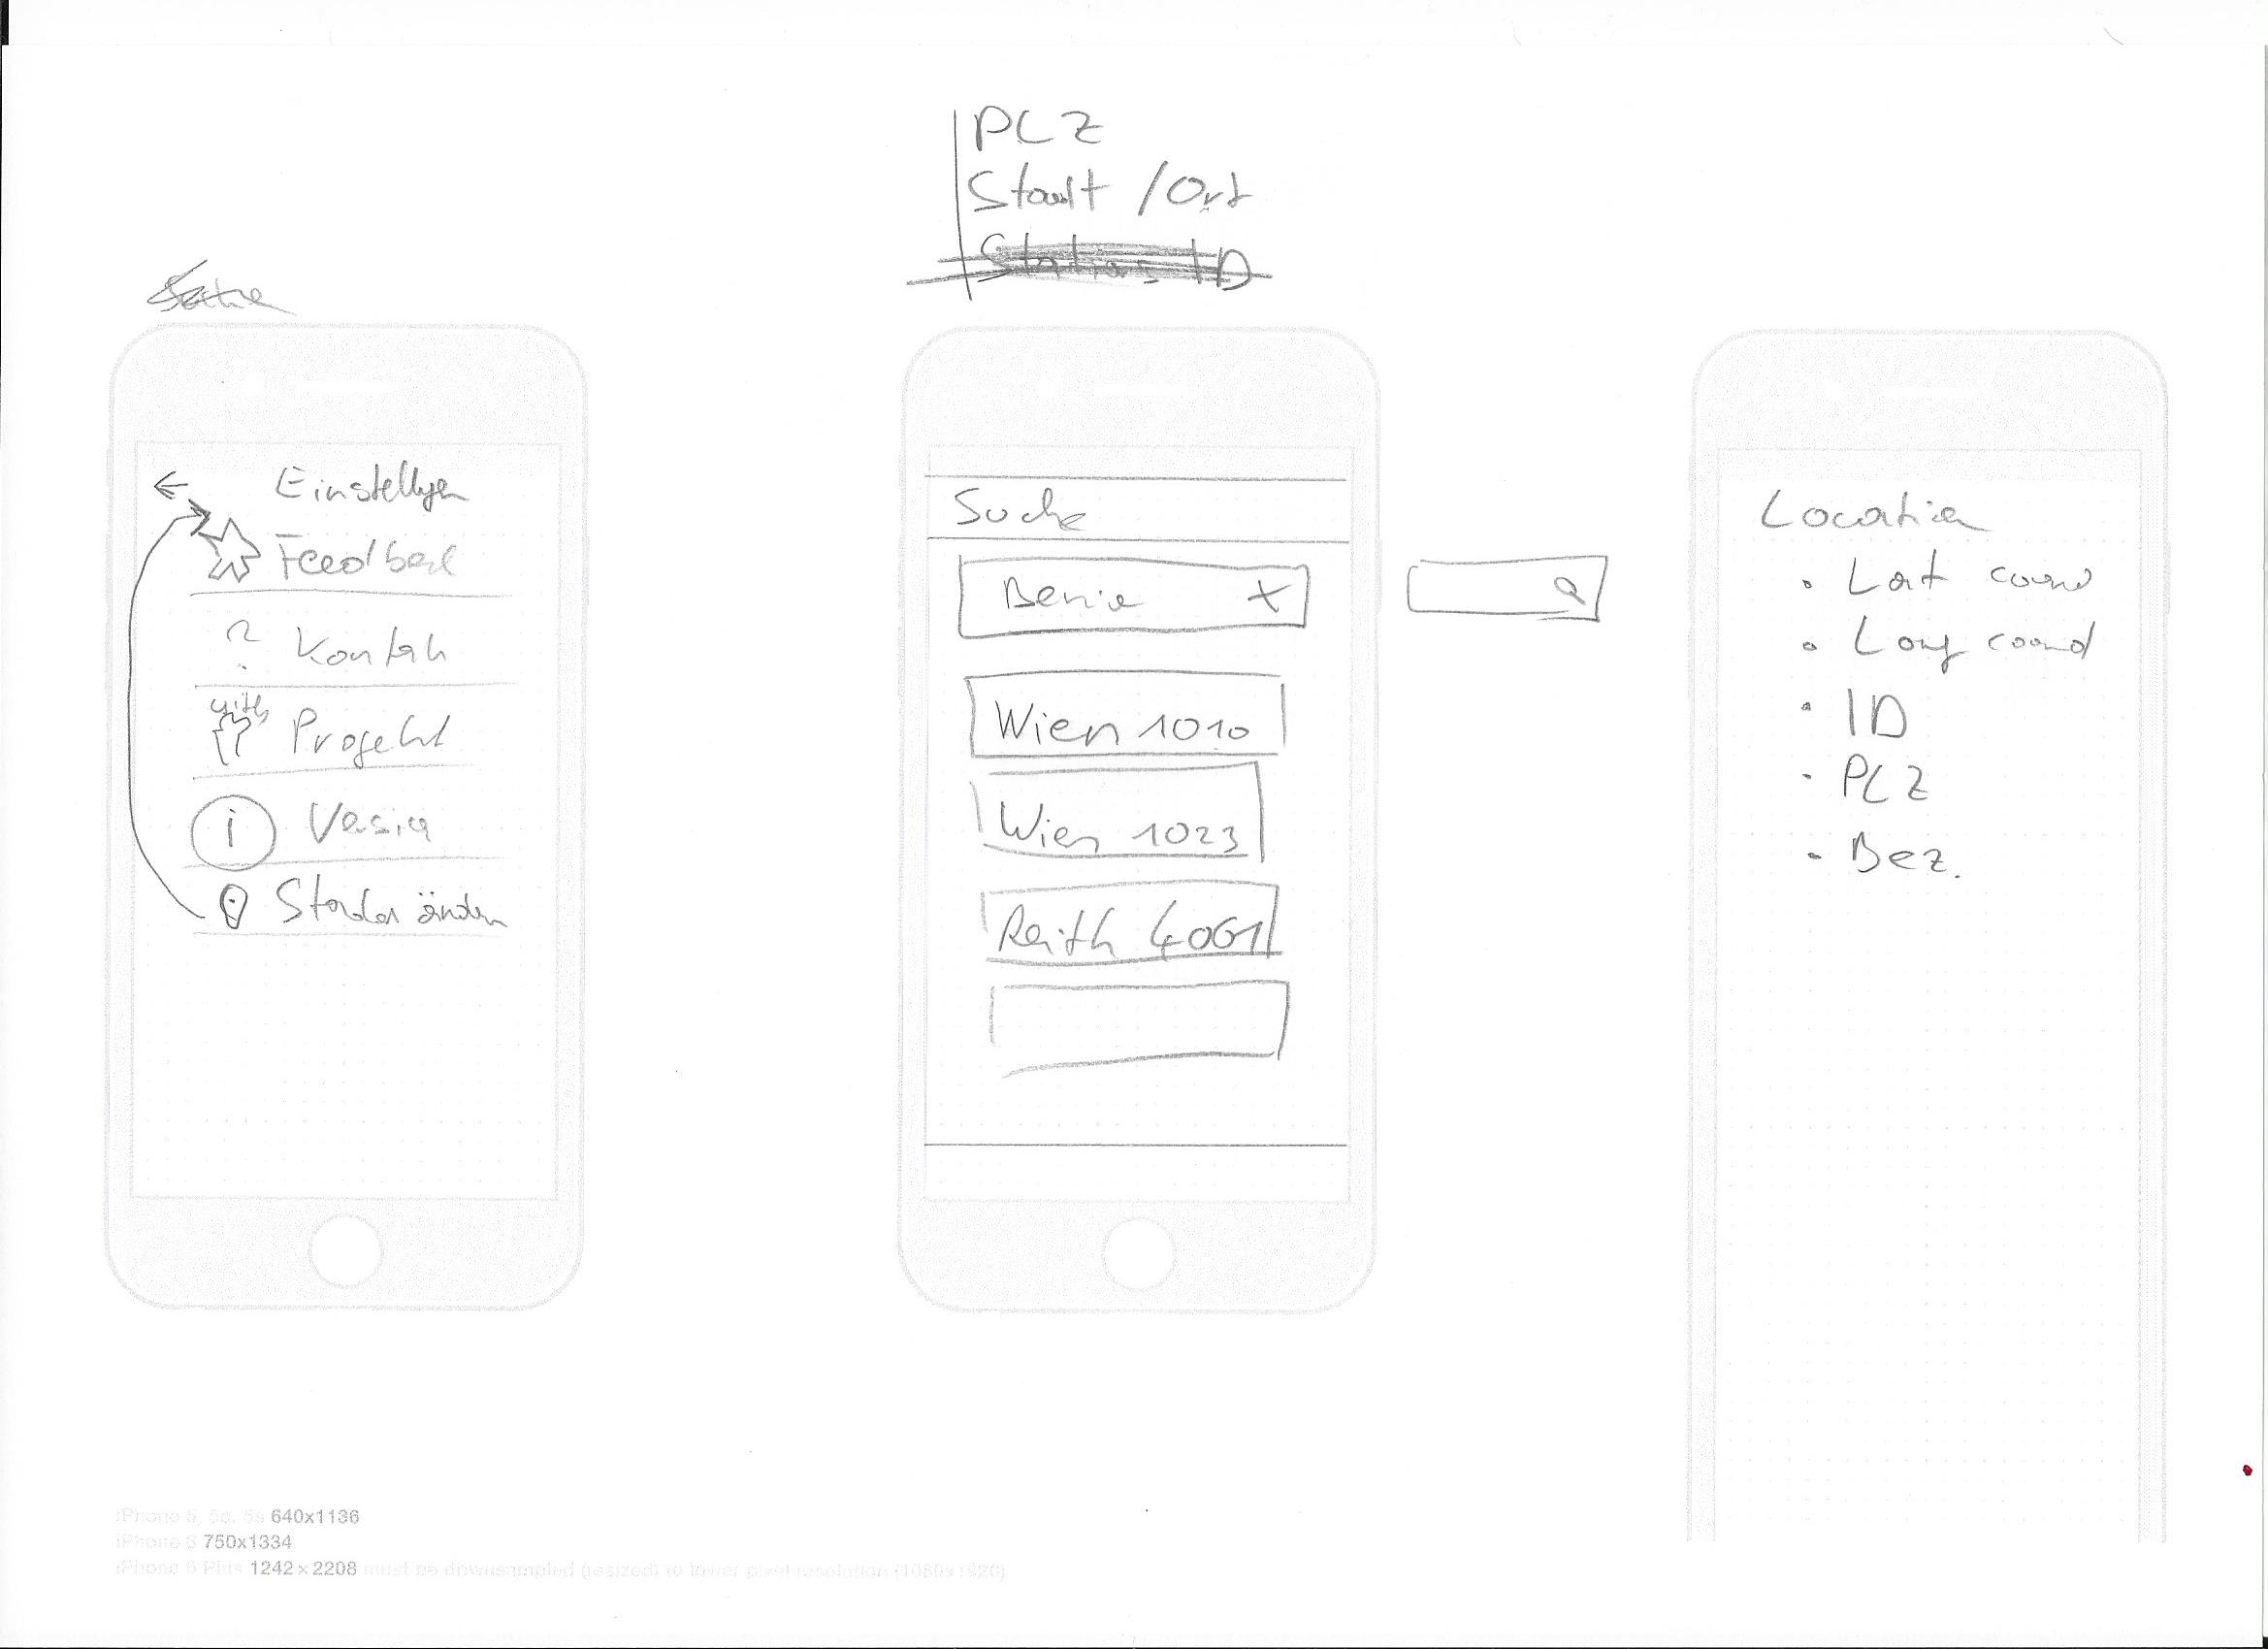 PLZ
Stadt / Ort
Station ID
Suche
Einstellungen
Feedback
Kontakt
gith
Projekt
i Version
Standort ändern
Suche
X
Wien 1010
Wien 1023
Reith 4061
Location
• Lat coord
• Long coord
• ID
• PLZ
• Bez.
iPhone 5, 5c, 5s 640x1136
iPhone 6 750x1334
iPhone 6 Plus 1242×2208 must be downsampled (resized) to lower pixel resolution (1080x1920)